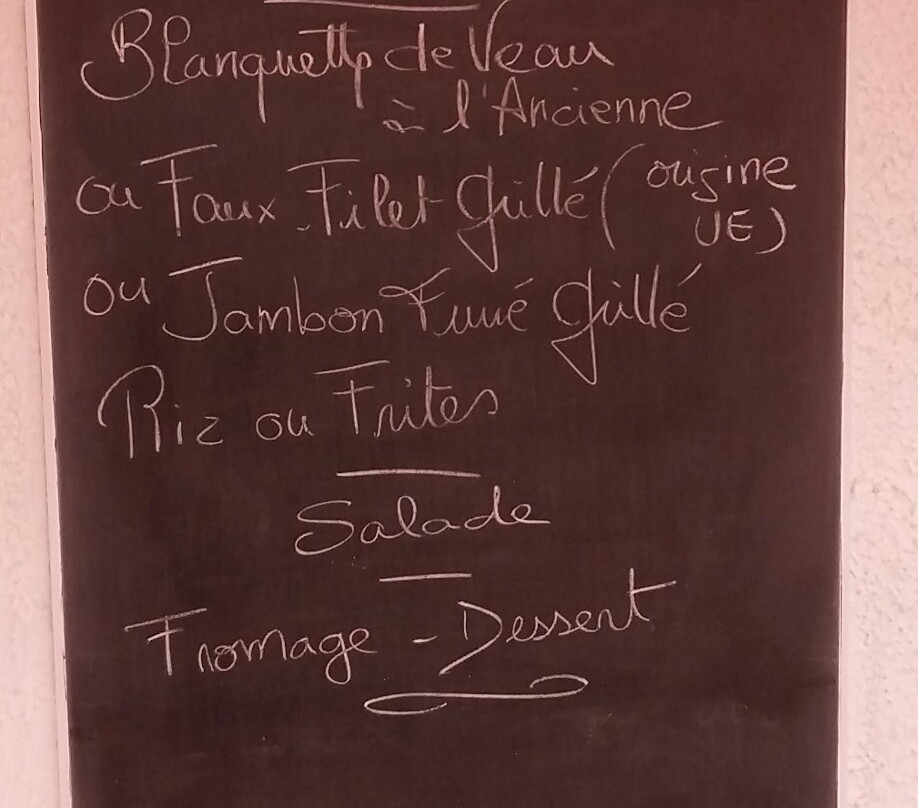 Blanquette de Veau
à l'Ancienne
ou Faux-Filet Grillé (origine
UE)
ou Jambon Fumé Grillé
Riz ou Frites
Salade
Fromage - Dessert